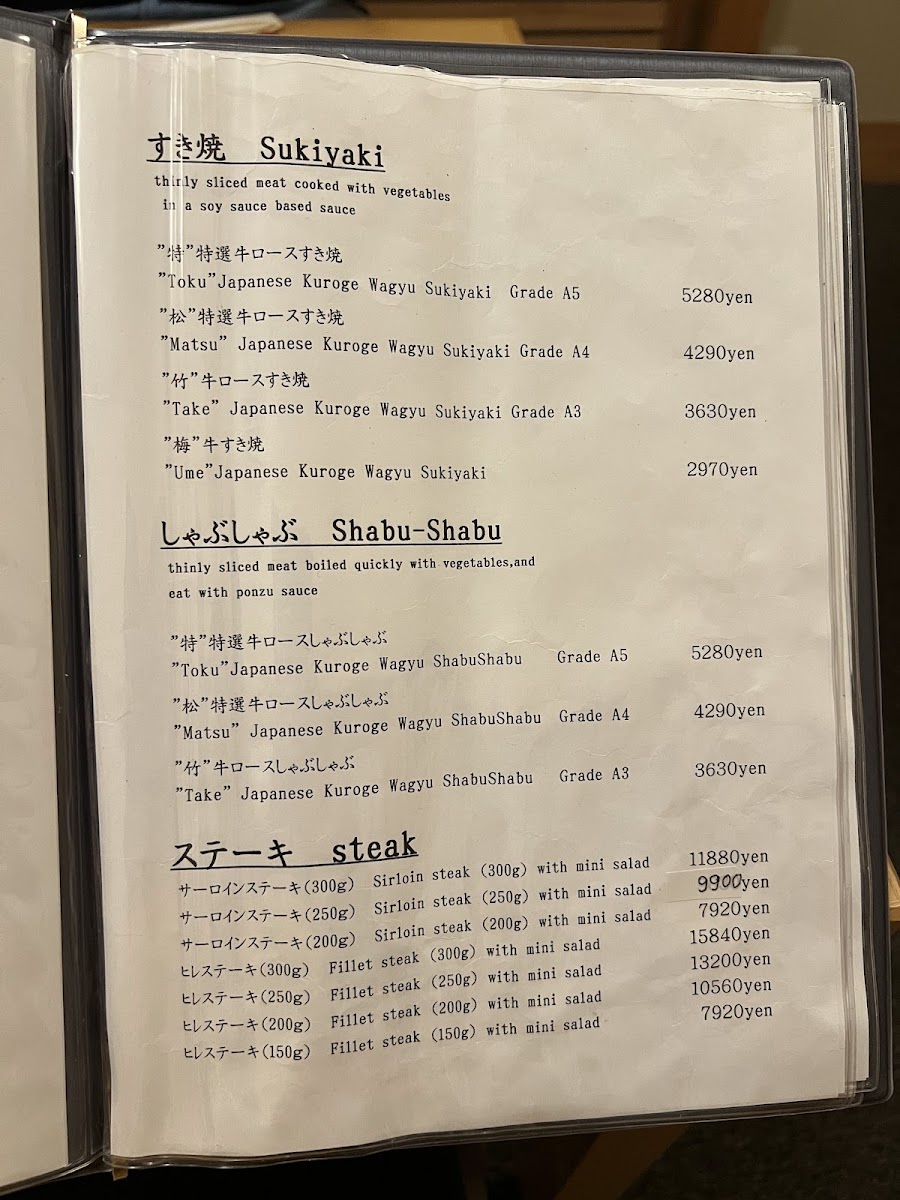 すき焼 Sukiyaki
thinly sliced meat cooked with vegetables
in a soy sauce based sauce
"特"特選牛ロースすき焼
"Toku"Japanese Kuroge Wagyu Sukiyaki Grade A5 5280yen
"松"特選牛ロースすき焼
"Matsu" Japanese Kuroge Wagyu Sukiyaki Grade A4 4290yen
"竹"牛ロースすき焼
"Take" Japanese Kuroge Wagyu Sukiyaki Grade A3 3630yen
"梅"牛すき焼
"Ume"Japanese Kuroge Wagyu Sukiyaki 2970yen
しゃぶしゃぶ Shabu-Shabu
thinly sliced meat boiled quickly with vegetables,and
eat with ponzu sauce
"特"特選牛ロースしゃぶしゃぶ
"Toku"Japanese Kuroge Wagyu ShabuShabu Grade A5 5280yen
"松"特選牛ロースしゃぶしゃぶ
"Matsu" Japanese Kuroge Wagyu ShabuShabu Grade A4 4290yen
"竹"牛ロースしゃぶしゃぶ
"Take" Japanese Kuroge Wagyu ShabuShabu Grade A3 3630yen
ステーキ steak
サーロインステーキ(300g) Sirloin steak (300g) with mini salad 11880yen
サーロインステーキ(250g) Sirloin steak (250g) with mini salad 9900yen
サーロインステーキ(200g) Sirloin steak (200g) with mini salad 7920yen
ヒレステーキ(300g) Fillet steak (300g) with mini salad 15840yen
ヒレステーキ(250g) Fillet steak (250g) with mini salad 13200yen
ヒレステーキ(200g) Fillet steak (200g) with mini salad 10560yen
ヒレステーキ(150g) Fillet steak (150g) with mini salad 7920yen